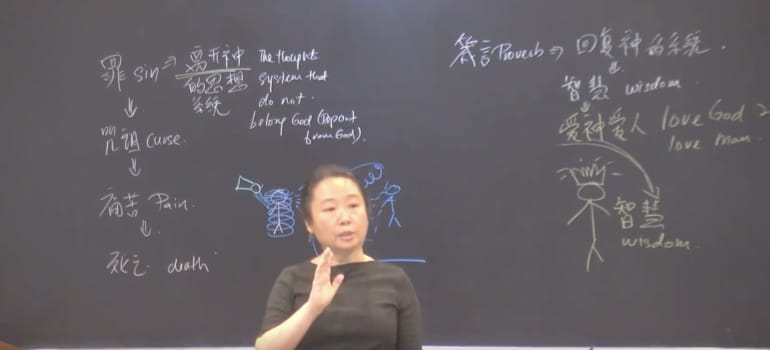 罪 sin ⇒ 离开神
的思想
系统
The thoughts
system that
do not.
belong God (Depart
from God).
↓
咒诅 curse.
↓
痛苦 Pain.
↓
死亡. death
箴言 Proverb ⇒ 回复神的系统.
↓
智慧 wisdom.
↓
爱神爱人 love God 2
love man.
智慧
wisdom.